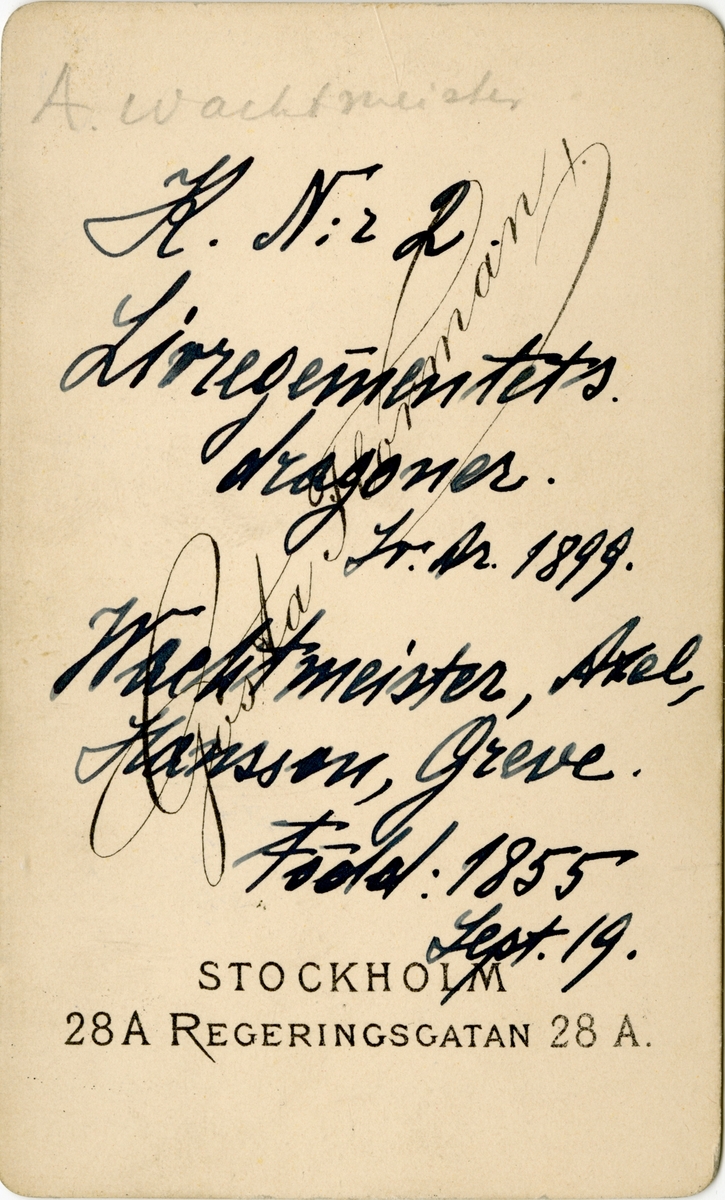 A. Wachtmeister
K. N:r 2
Livregementets
dragoner.
Lv. Ar. 1899.
Wachtmeister, Axel,
Hansson, Greve.
Född: 1855
Sept. 19.
Gösta Florman
STOCKHOLM
28A REGERINGSGATAN 28 A.